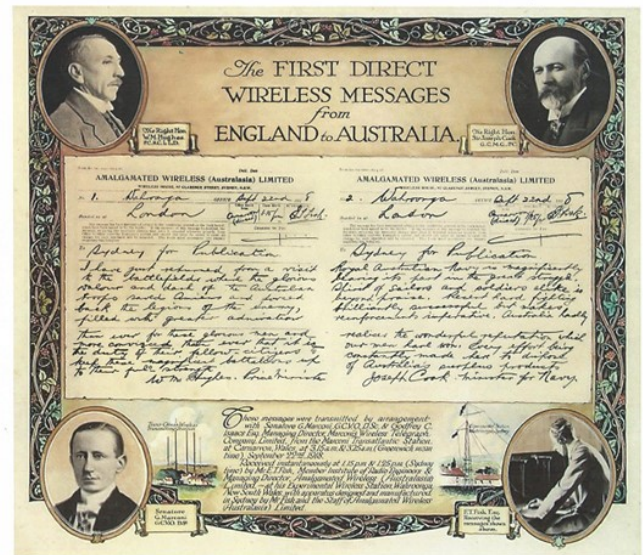 The FIRST DIRECT
WIRELESS MESSAGES
from
ENGLAND to AUSTRALIA.
The Right Hon.
W.M. Hughes
P.C., K.C., LL.D.
The Right Hon.
Sir Joseph Cook
G.C.M.G., P.C.
AMALGAMATED WIRELESS (Australasia) LIMITED
WIRELESS HOUSE, 97 CLARENCE STREET, SYDNEY, N.S.W.
No 1. Wahroonga Sept 22nd 8
London
To
Sydney for Publication
I have just returned from a visit
to the battlefields where the glorious
valour and dash of the Australian
troops saved Amiens and forced
back the legions of the enemy,
filled with greater admiration
than ever for these glorious men and
more convinced than ever that it is
the duty of their fellow-citizens to
keep these magnificent battalions up
to their full strength.
W M Hughes. Prime Minister
AMALGAMATED WIRELESS (Australasia) LIMITED
WIRELESS HOUSE, 97 CLARENCE STREET, SYDNEY, N.S.W.
2. Wahroonga Sept 22nd 8
To
Sydney for Publication
Royal Australian Navy is magnificently
bearing its part in the great struggle.
Spirit of sailors and soldiers alike is
beyond praise. Recent hard fighting
brilliantly successful but
reinforcements imperative. Australia hardly
realises the wonderful reputation which
our men have won. Every effort being
constantly made here to dispose
of Australia's surplus products
Joseph Cook, Minister for Navy
These messages were transmitted by arrangement
with Senatore G. Marconi, G.C.V.O., D.Sc. & Godfrey C.
Isaacs Esq. Managing Director, Marconi's Wireless Telegraph
Company Limited, from the Marconi Transatlantic Station,
at Carnarvon, Wales, at 3.15 a.m. & 3.25 a.m. (Greenwich mean
time), September 22nd 1918.
Received instantaneously at 1.15 p.m. & 1.25 p.m. (Sydney
time) by Mr. E.T. Fisk, Member Institute of Radio Engineers &
Managing Director, Amalgamated Wireless (Australasia)
Limited — at his Experimental Wireless Station, Wahroonga,
New South Wales, with apparatus designed and manufactured
in Sydney by Mr. Fisk and the Staff of Amalgamated Wireless
(Australasia) Limited.
Senatore
G. Marconi
G.C.V.O., D.Sc.
E.T. Fisk, Esq.
Receiving the
messages shown
above.